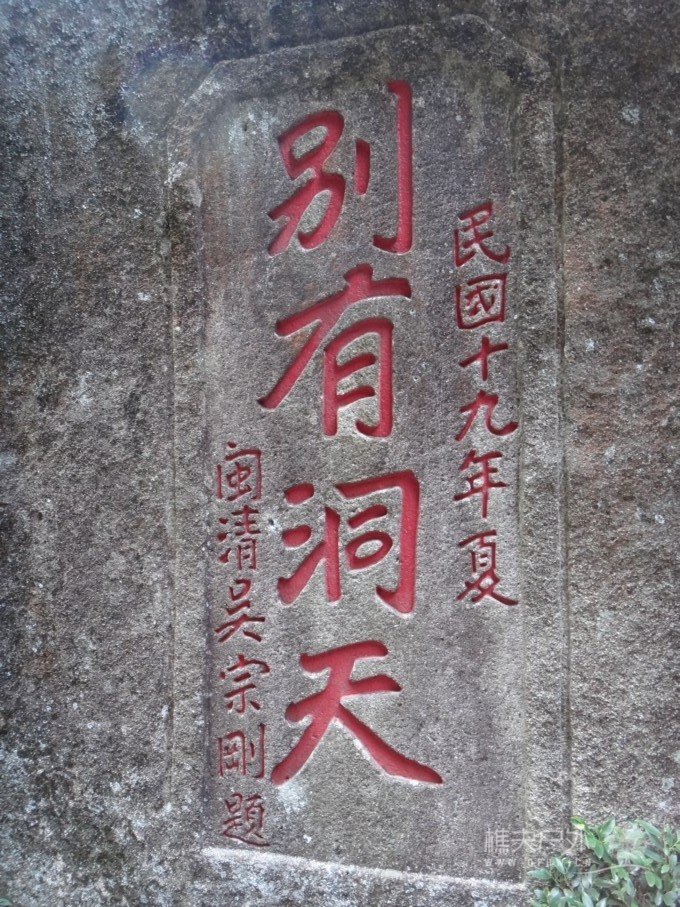 民國十九年夏
别有洞天
闽清吴宗剛題